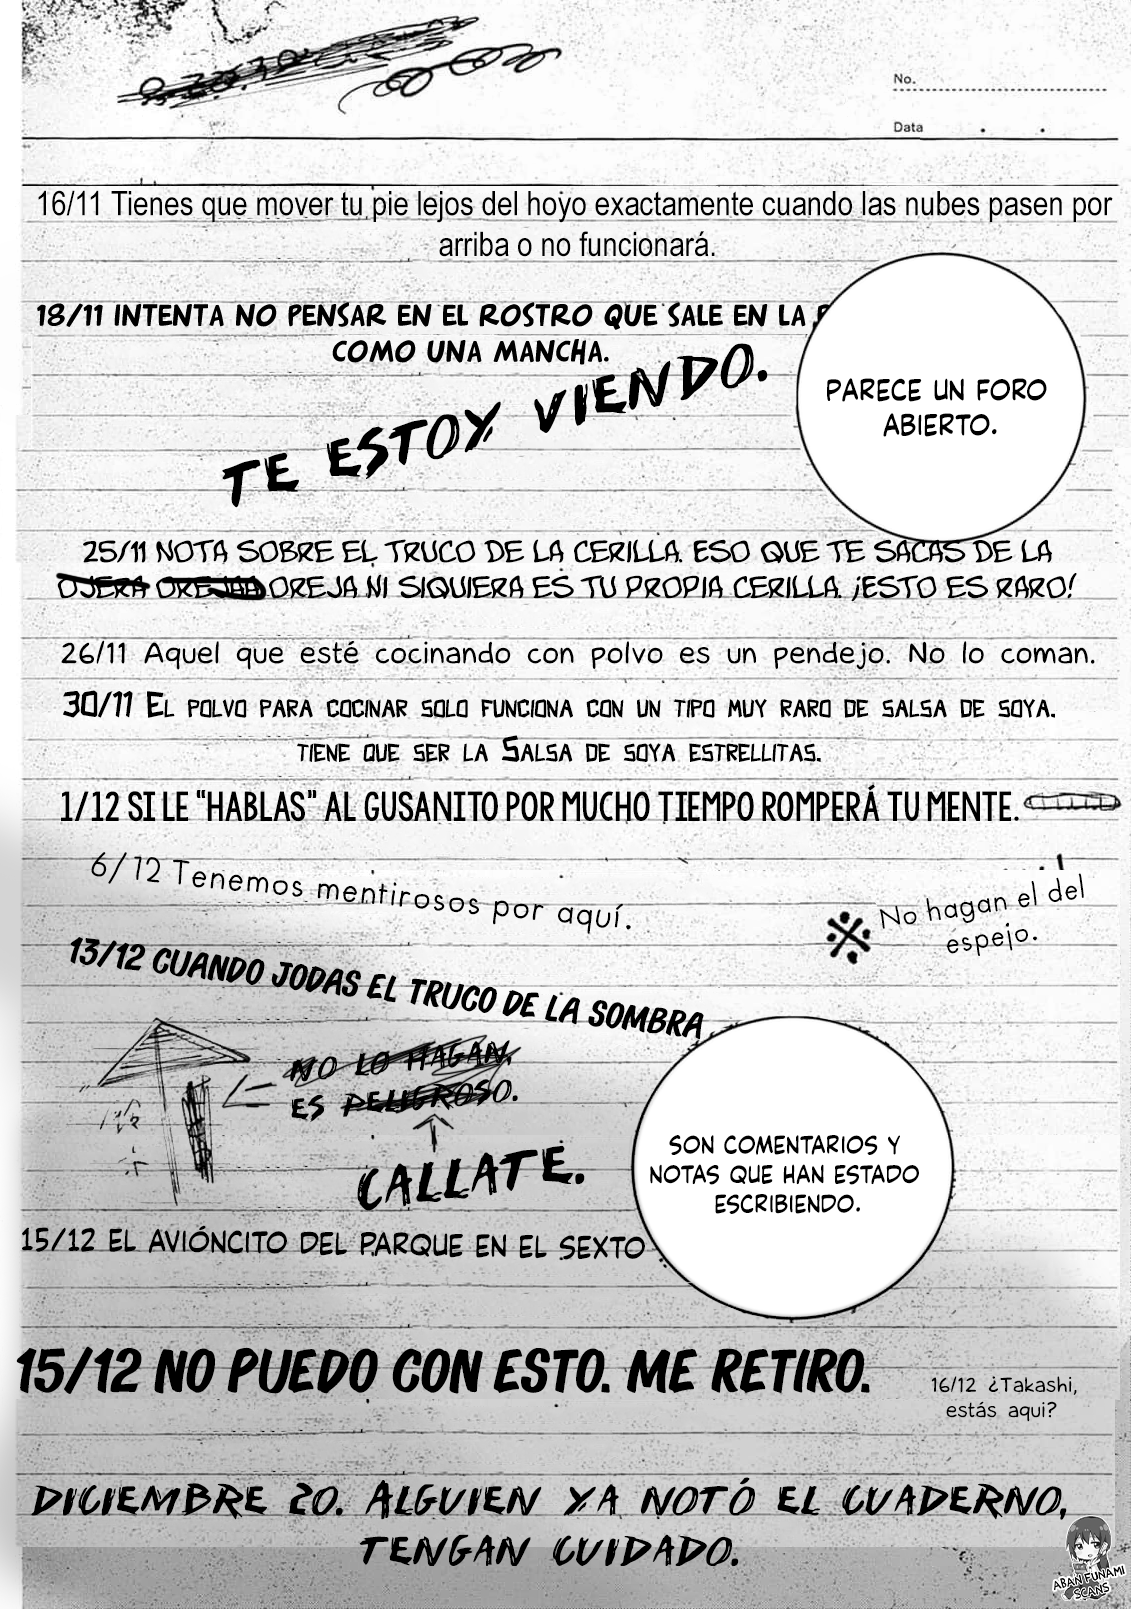 No.
Data
16/11 Tienes que mover tu pie lejos del hoyo exactamente cuando las nubes pasen por
arriba o no funcionará.
18/11 INTENTA NO PENSAR EN EL ROSTRO QUE SALE EN LA
COMO UNA MANCHA.
TE ESTOY VIENDO.
PARECE UN FORO
ABIERTO.
25/11 NOTA SOBRE EL TRUCO DE LA CERILLA. ESO QUE TE SACAS DE LA
OJERA OREJAA OREJA NI SIQUIERA ES TU PROPIA CERILLA. ¡ESTO ES RARO!
26/11 Aquel que esté cocinando con polvo es un pendejo. No lo coman.
30/11 EL POLVO PARA COCINAR SOLO FUNCIONA CON UN TIPO MUY RARO DE SALSA DE SOYA.
TIENE QUE SER LA SALSA DE SOYA ESTRELLITAS.
1/12 SI LE "HABLAS" AL GUSANITO POR MUCHO TIEMPO ROMPERÁ TU MENTE.
6/12 Tenemos mentirosos por aquí.
※ No hagan el del
espejo.
13/12 CUANDO JODAS EL TRUCO DE LA SOMBRA
NO LO HAGAN,
ES PELIGROSO.
CALLATE.
SON COMENTARIOS Y
NOTAS QUE HAN ESTADO
ESCRIBIENDO.
15/12 EL AVIÓNCITO DEL PARQUE EN EL SEXTO
15/12 NO PUEDO CON ESTO. ME RETIRO.
16/12 ¿Takashi,
estás aqui?
DICIEMBRE 20. ALGUIEN YA NOTÓ EL CUADERNO,
TENGAN CUIDADO.
ABAN FUNAMI
SCANS